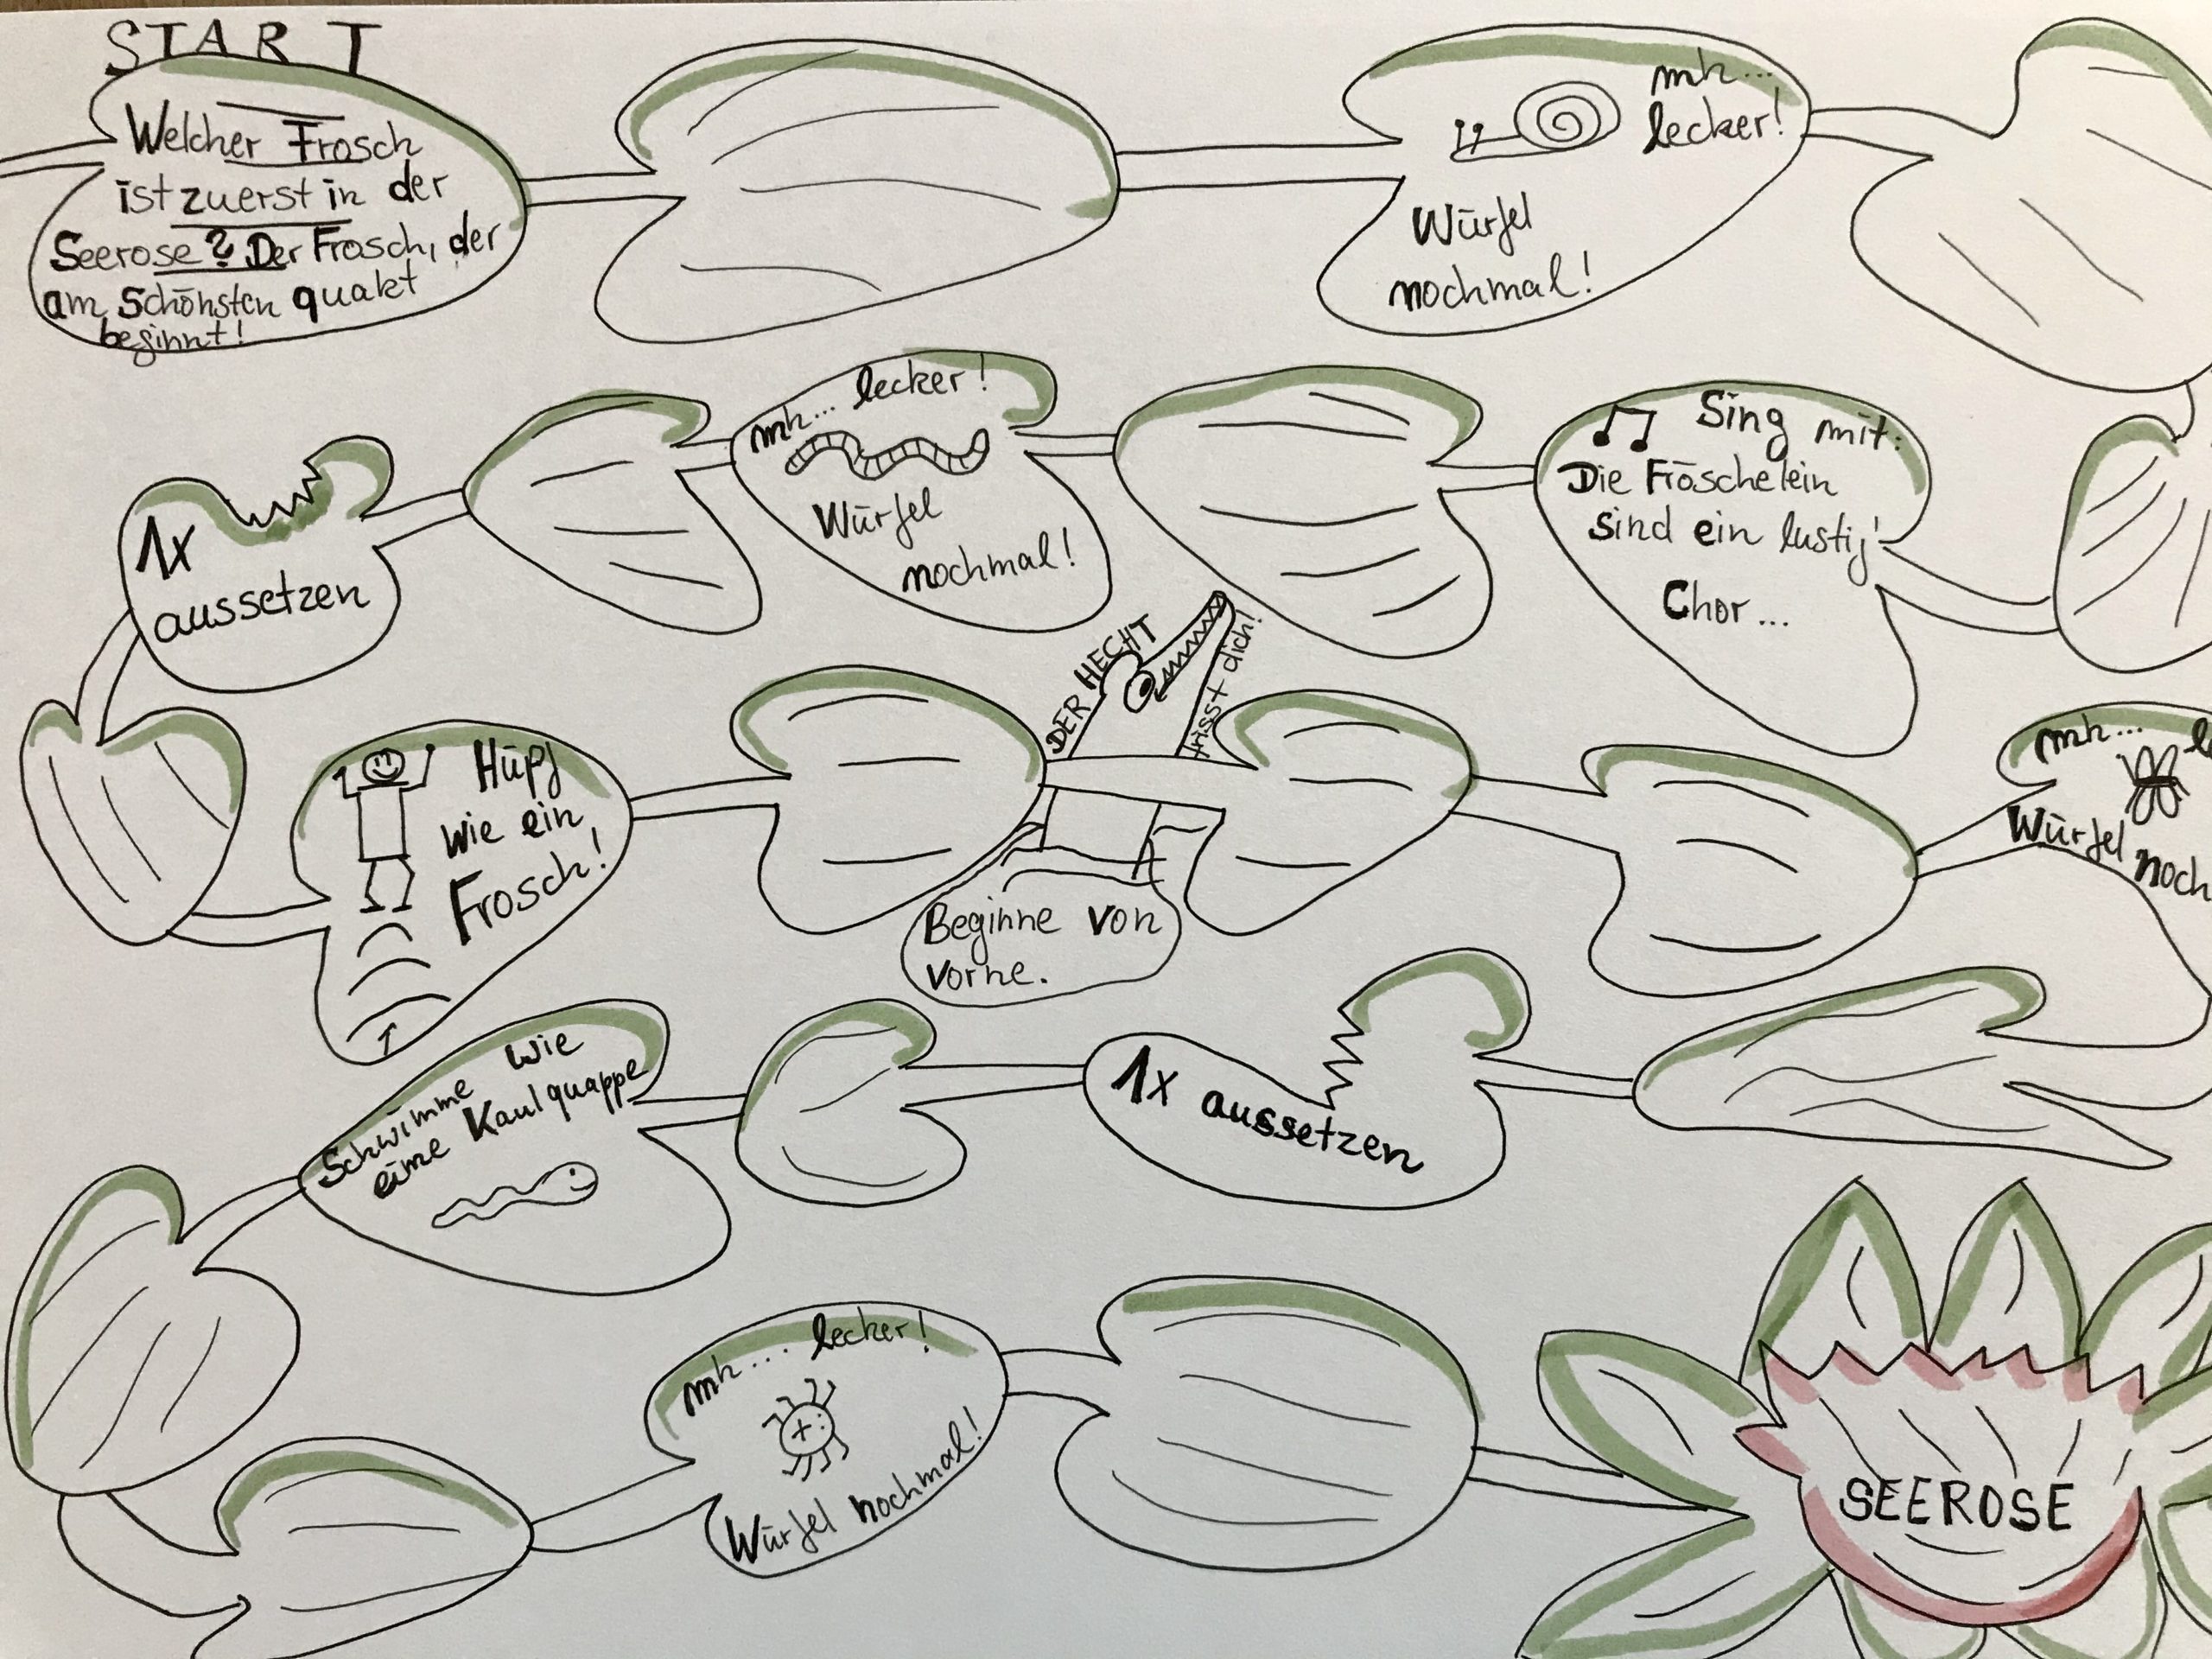 START
Welcher Frosch
ist zuerst in der
Seerose? Der Frosch, der
am Schönsten quakt
beginnt!
mh...
lecker!
Würfel
nochmal!
Sing mit:
Die Fröschelein
sind ein lustig'
Chor...
mh... lecker!
Würfel
nochmal!
1x
aussetzen
Hüpf
wie ein
Frosch!
DER HECHT
frisst dich!
Beginne von
vorne.
mh... l
Würfel
noch
1x aussetzen
Schwimme wie
eine Kaulquappe
mh.... lecker!
Würfel nochmal!
SEEROSE